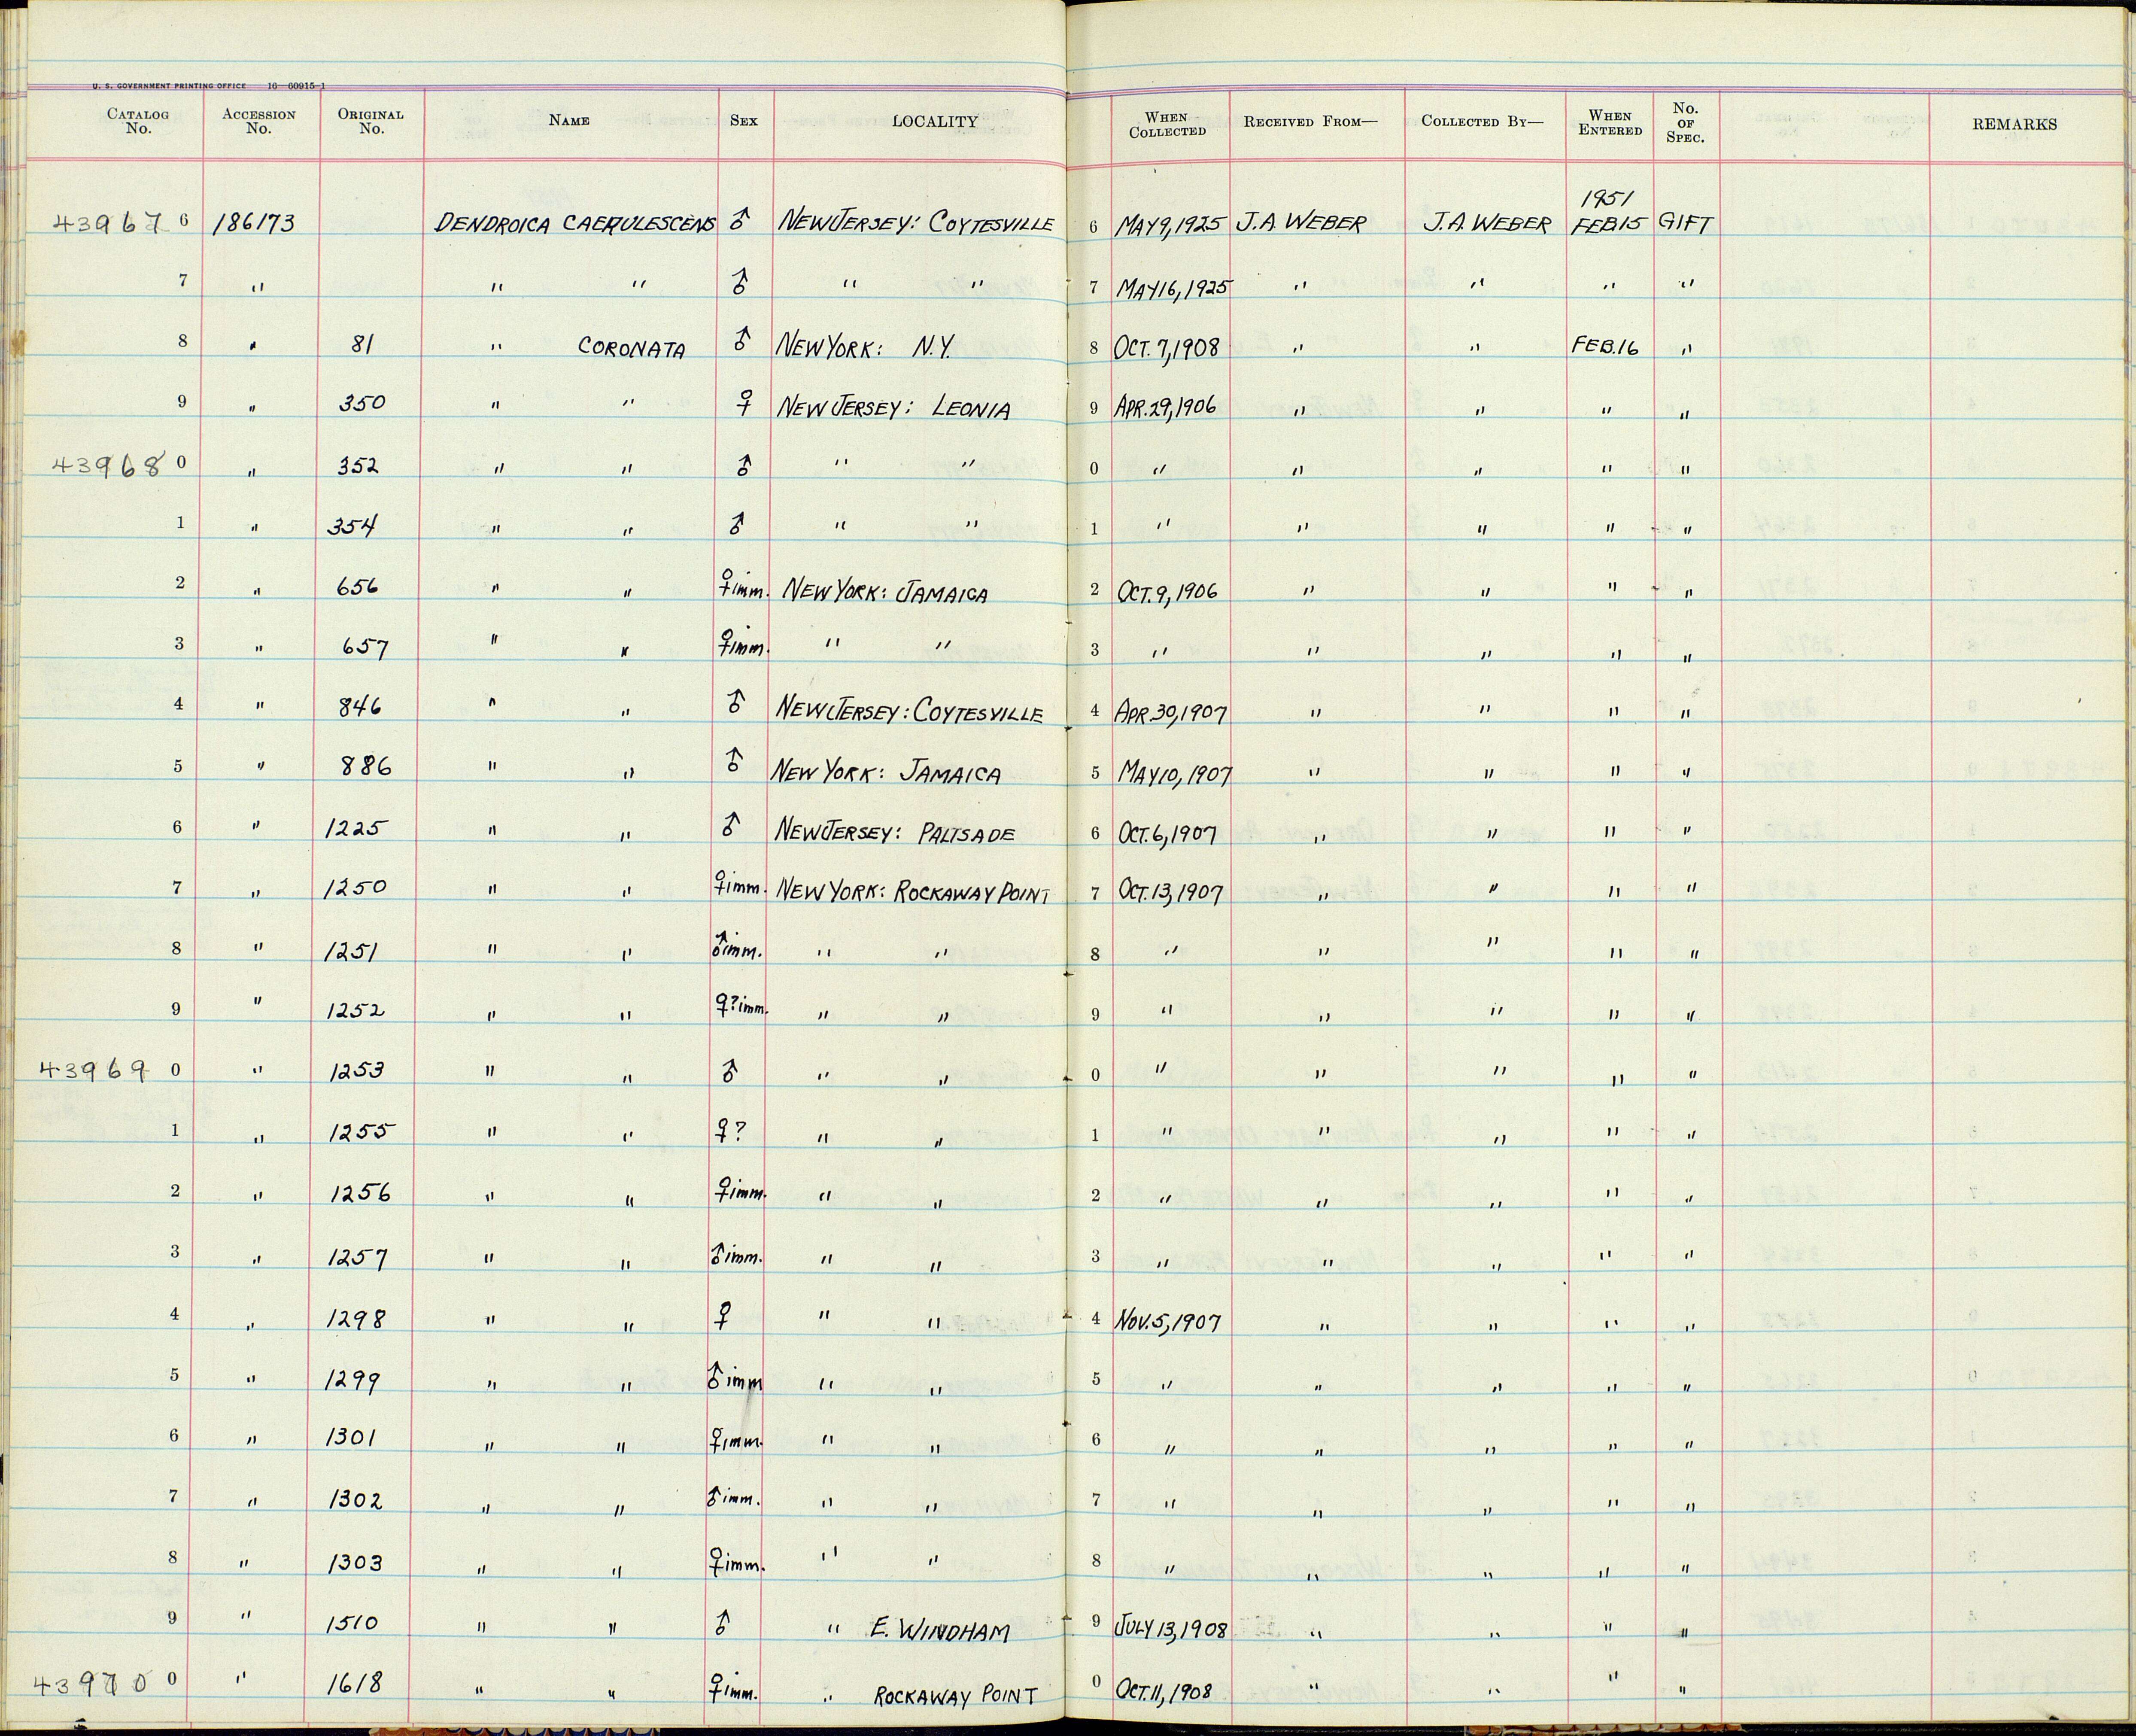 U. S. GOVERNMENT PRINTING OFFICE 16—60915-1
CATALOG No. ACCESSION No. ORIGINAL No. NAME SEX LOCALITY WHEN COLLECTED RECEIVED FROM— COLLECTED BY— WHEN ENTERED No. OF SPEC. REMARKS
1951
43967 6 186173 DENDROICA CAERULESCENS ♂ NEW JERSEY: COYTESVILLE 6 MAY 9, 1925 J.A. WEBER J.A. WEBER FEB 15 GIFT
7 " " " ♂ " " 7 MAY 16, 1925 " " " "
8 " 81 " CORONATA ♂ NEW YORK: N.Y. 8 OCT. 7, 1908 " " FEB. 16 "
9 " 350 " " ♀ NEW JERSEY: LEONIA 9 APR. 29, 1906 " " " "
43968 0 " 352 " " ♂ " " 0 " " " " "
1 " 354 " " ♂ " " 1 " " " " "
2 " 656 " " ♀ imm. NEW YORK: JAMAICA 2 OCT. 9, 1906 " " " "
3 " 657 " " ♀ imm. " " 3 " " " " "
4 " 846 " " ♂ NEW JERSEY: COYTESVILLE 4 APR. 30, 1907 " " " "
5 " 886 " " ♂ NEW YORK: JAMAICA 5 MAY 10, 1907 " " " "
6 " 1225 " " ♂ NEW JERSEY: PALISADE 6 OCT. 6, 1907 " " " "
7 " 1250 " " ♀ imm. NEW YORK: ROCKAWAY POINT 7 OCT. 13, 1907 " " " "
8 " 1251 " " ♂ imm. " " 8 " " " " "
9 " 1252 " " ♀? imm. " " 9 " " " " "
43969 0 " 1253 " " ♂ " " 0 " " " " "
1 " 1255 " " ♀? " " 1 " " " " "
2 " 1256 " " ♀ imm. " " 2 " " " " "
3 " 1257 " " ♂ imm. " " 3 " " " " "
4 " 1298 " " ♀ " " 4 NOV. 5, 1907 " " " "
5 " 1299 " " ♂ imm " " 5 " " " " "
6 " 1301 " " ♀ imm. " " 6 " " " " "
7 " 1302 " " ♂ imm. " " 7 " " " " "
8 " 1303 " " ♀ imm. " " 8 " " " " "
9 " 1510 " " ♂ " E. WINDHAM 9 JULY 13, 1908 " " " "
43970 0 " 1618 " " ♀ imm. " ROCKAWAY POINT 0 OCT. 11, 1908 " " " "